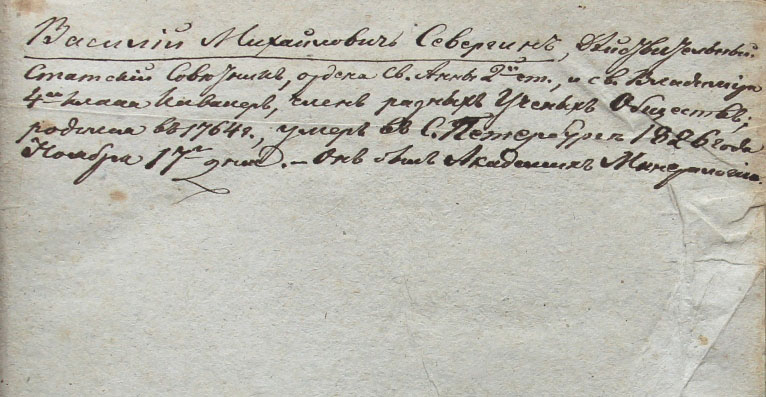 Василій Михайловичъ Севергинъ, Дѣйствительный
Статскій Совѣтникъ, ордена Св. Анны 2й ст., и св. Владиміра
4го класса Кавалеръ, членъ разныхъ Ученыхъ Обществъ;
родился въ 1764 г., умеръ въ С. Петербургѣ 1826 года
Ноября 17го дня. – Онъ былъ Академикъ Минералогіи.